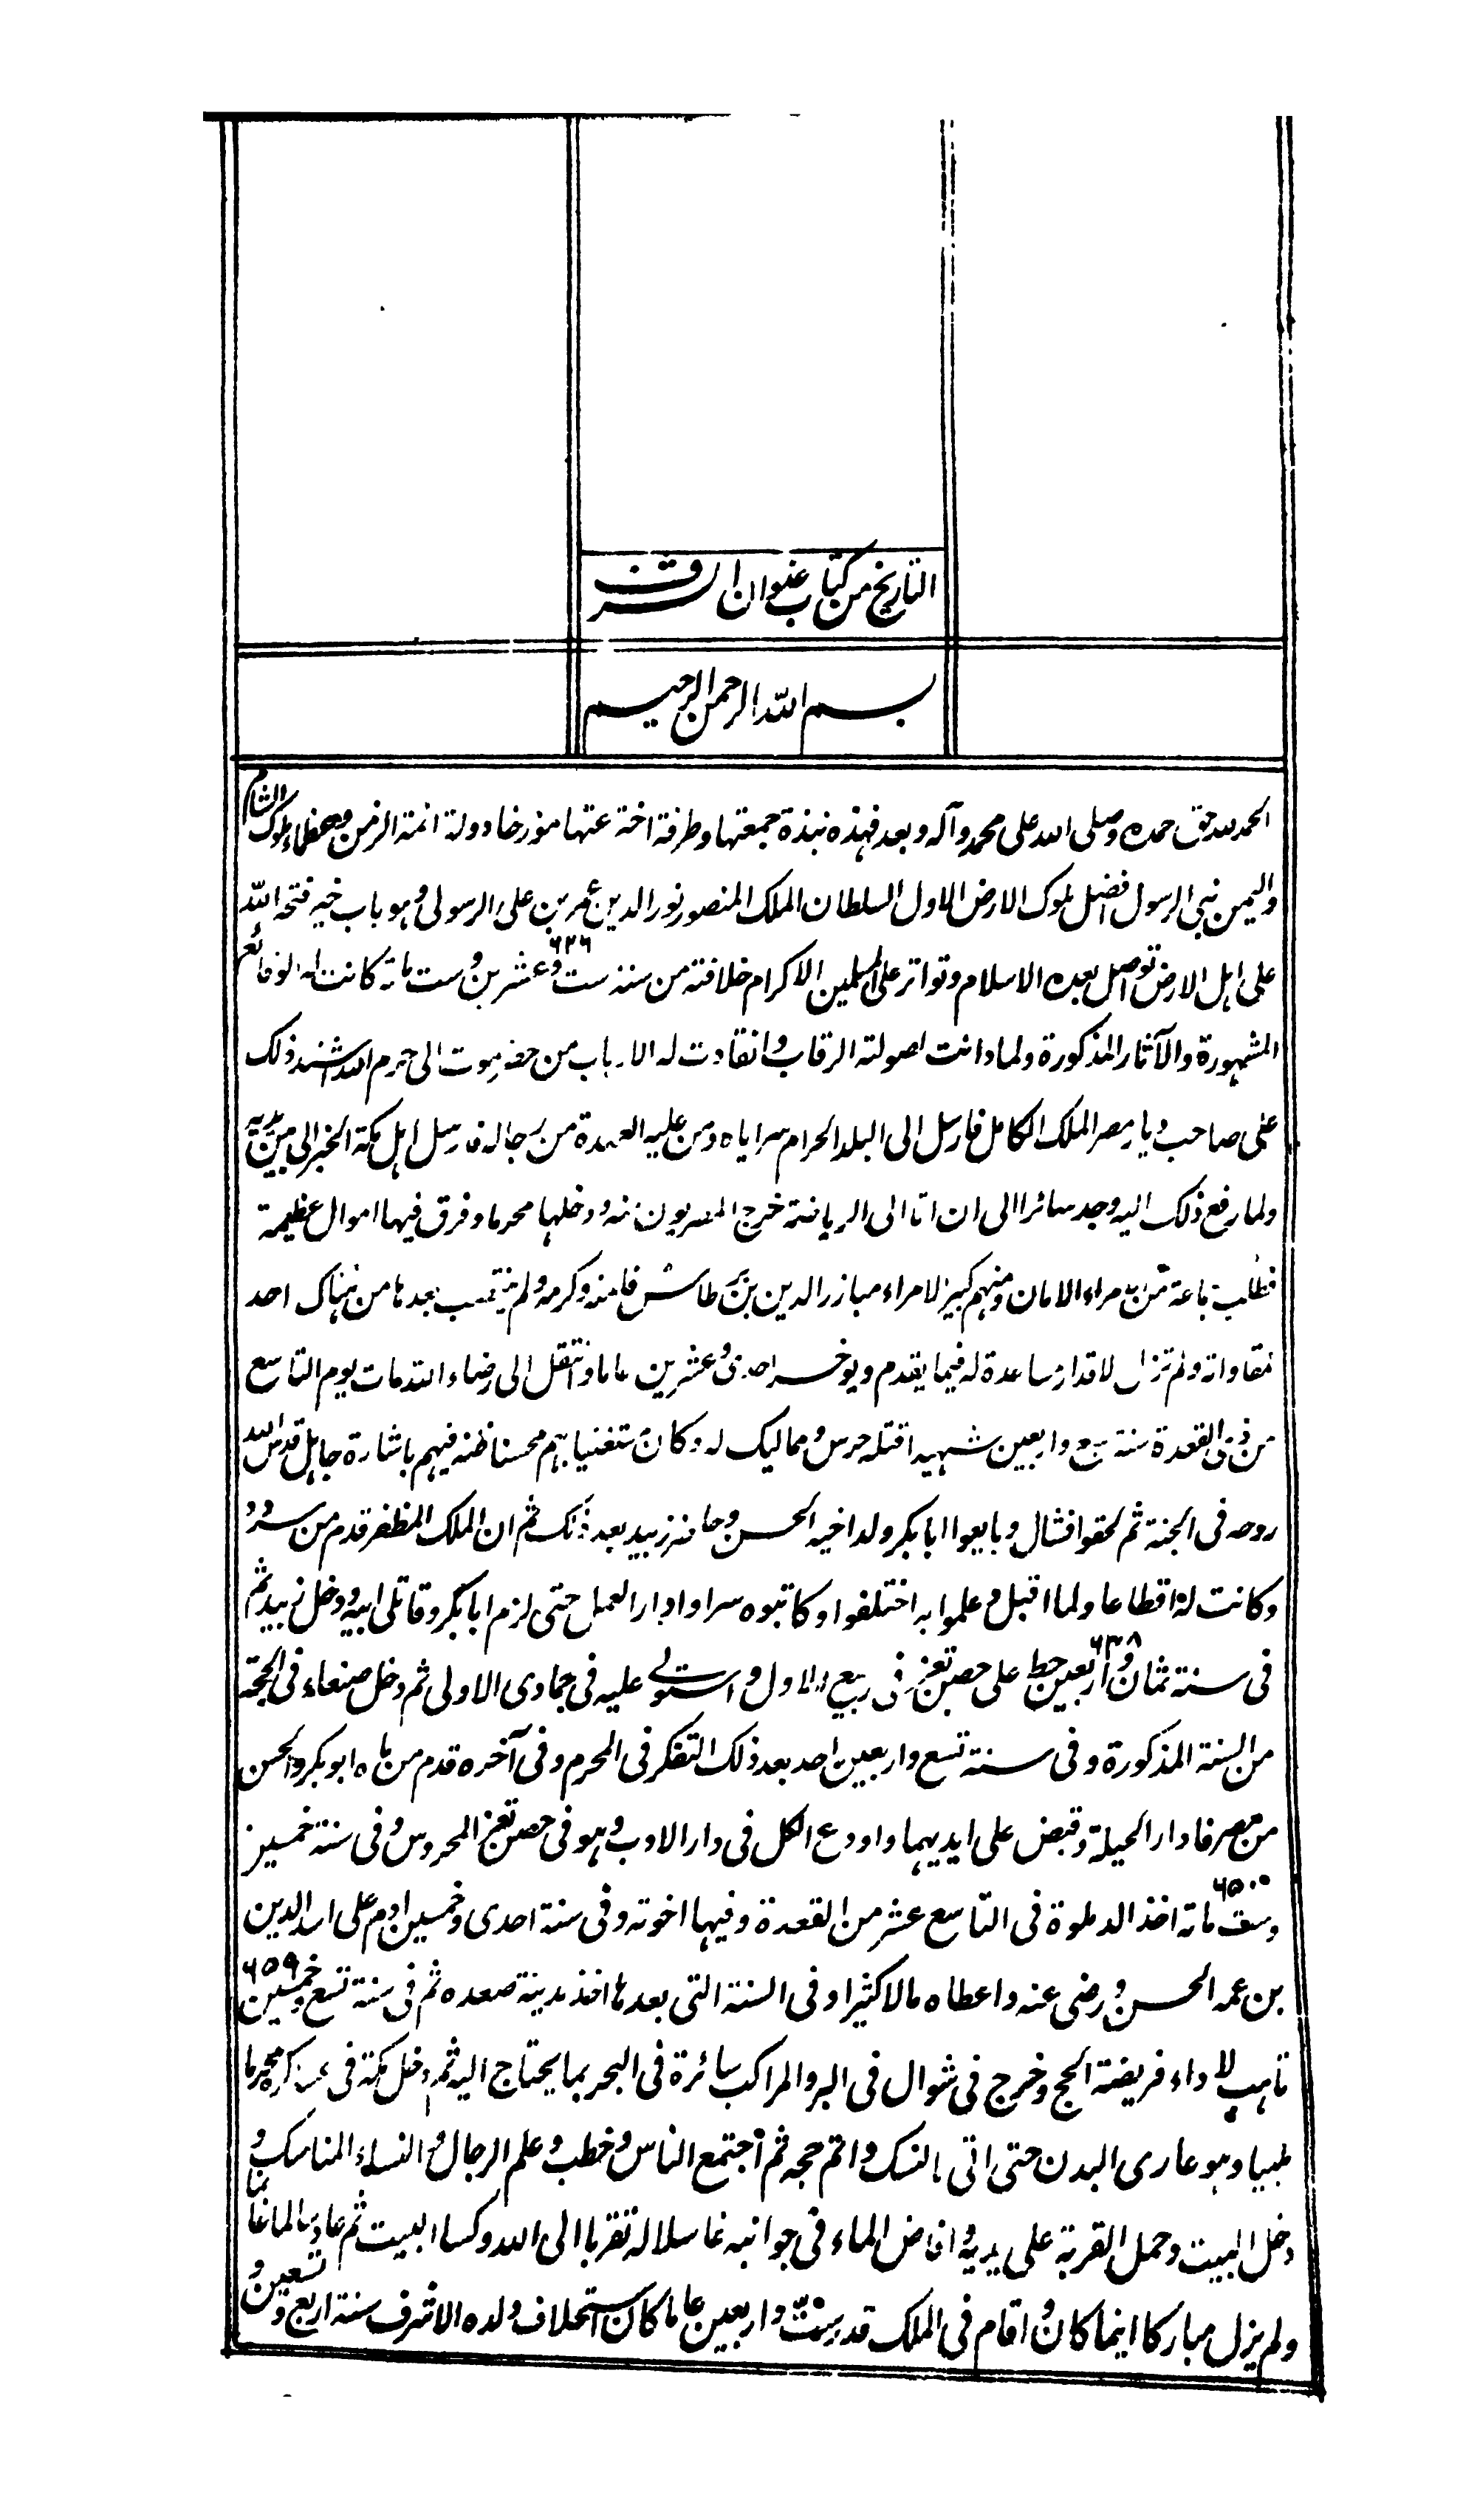 التاريخ من كتاب عنوان الشرف
بسم الله الرحمن الرحيم
الحمد لله حق حمده وصلى الله على محمد وآله وبعد فهذه نبذة جمعتها وطرفة اخترعتها مورخا دولة ائمة الزمن وعظماء ملوك الشام
واليمن بنى الرسول افضل ملوك الارض الاول السلطان الملك المنصور نور الدين عمر بن على الرسولى وهو باب خير فتحه الله
على اهل الارض توصل بعده الاسلام وتواتر على المسلمين الاكرام خلافته من سنة ست وعشرين وست ماية ٦٢٦ كانت له الوقائع
المشهورة والآثار المذكورة ولما دانت لصولته الرقاب وانقادت له الارباب من حضرموت الى حرم الله اشتد ذلك
على صاحب ديار مصر الملك الكامل فارسل الى البلد الحرام سراياه ومن عليه العهدة من رجاله فارسل اهل مكة الخبر الى بين يديه
ولما رفع ذلك اليه وجد سائرا الى ان اتا الى خرج المصريون منه ودخلها محرما وفرق فيها اموال عظيمة
فطلب جماعة من الامراء الامان ومنهم كبير الامراء مبارز الدين بن طاش فامنه وكرمه ولم ينتصب بعدها من هناك احد
لمقاواته ولم تزل الاقدار مساعدة له فيما يقدم ويوخر احدى وعشرين عاما وانتقل الى رضاء الله مات يوم التاسع
من ذى القعدة سنة سبع واربعين شهيدا قتله حرس ومماليك له وكان مستغنيا بهم محسنا ظنه فيهم باشارة جاهل قدس الله
روحه فى الجنة ثم لحقوا فشال وبايعوا ابا بكر ولد اخيه الحسن وحاصر زبيد بعد ذلك ثم ان الملك المظفر قدم من سردد
وكانت له اقطاعا ولما اقبل وعلموا به اختلفوا وكاتبوه سرا وادار العمل حتى لزم ابا بكر وقاتلى ابيه ودخل زبيد ثم
فى سنة ثمان واربعين ٦٤٨ حط على حصن تعز فى ربيع الاول واستولى عليه فى جمادى الاولى ثم دخل صنعاء فى الحجة
من السنة المذكورة وفى سنة تسع واربعين احد بعد ذلك التفكر فى المحرم وفى آخره قدم من ابو بكر والحسن
من مصر فادار الحيلة وقبض على ايديهما واودع الكل فى دار الادب وهو فى حصن تعز المحروس وفى سنة خمسين
وست ماته ٦٥٠ اخذ الدملوة فى التاسع عشر من القعدة وفيها اخوته وفى سنة احدى وخمسين على اسد الدين
بن عمه الحسن ورضى عنه واعطاه مالا كثيرا وفى السنة التى بعدها اخذ مدينة صعده ثم فى سنة تسع وخمسين ٦٥٩
تاهب لاداء فريضة الحج وخرج فى شوال فى البر والمراكب سائرة فى البحر بما يحتاج اليه ثم دخل مكة فى عساكره محرما
ملبيا وهو عارى البدن حتى اتى بالنسك واتم حجه ثم اجتمع الناس وخطب وعلم الرجال والنساء المناسك و
دخل البيت وحمل القربة على يديه وافاض الماء فى جوانبه غاسلا له تقربا الى الله وكسا البيت ثم عاد سالما غانما
ولم يزل مباركا اينما كان واقام فى الملك قدر ست واربعين عاما كان استخلاف ولده الاشرف سنة اربع وتسعين و